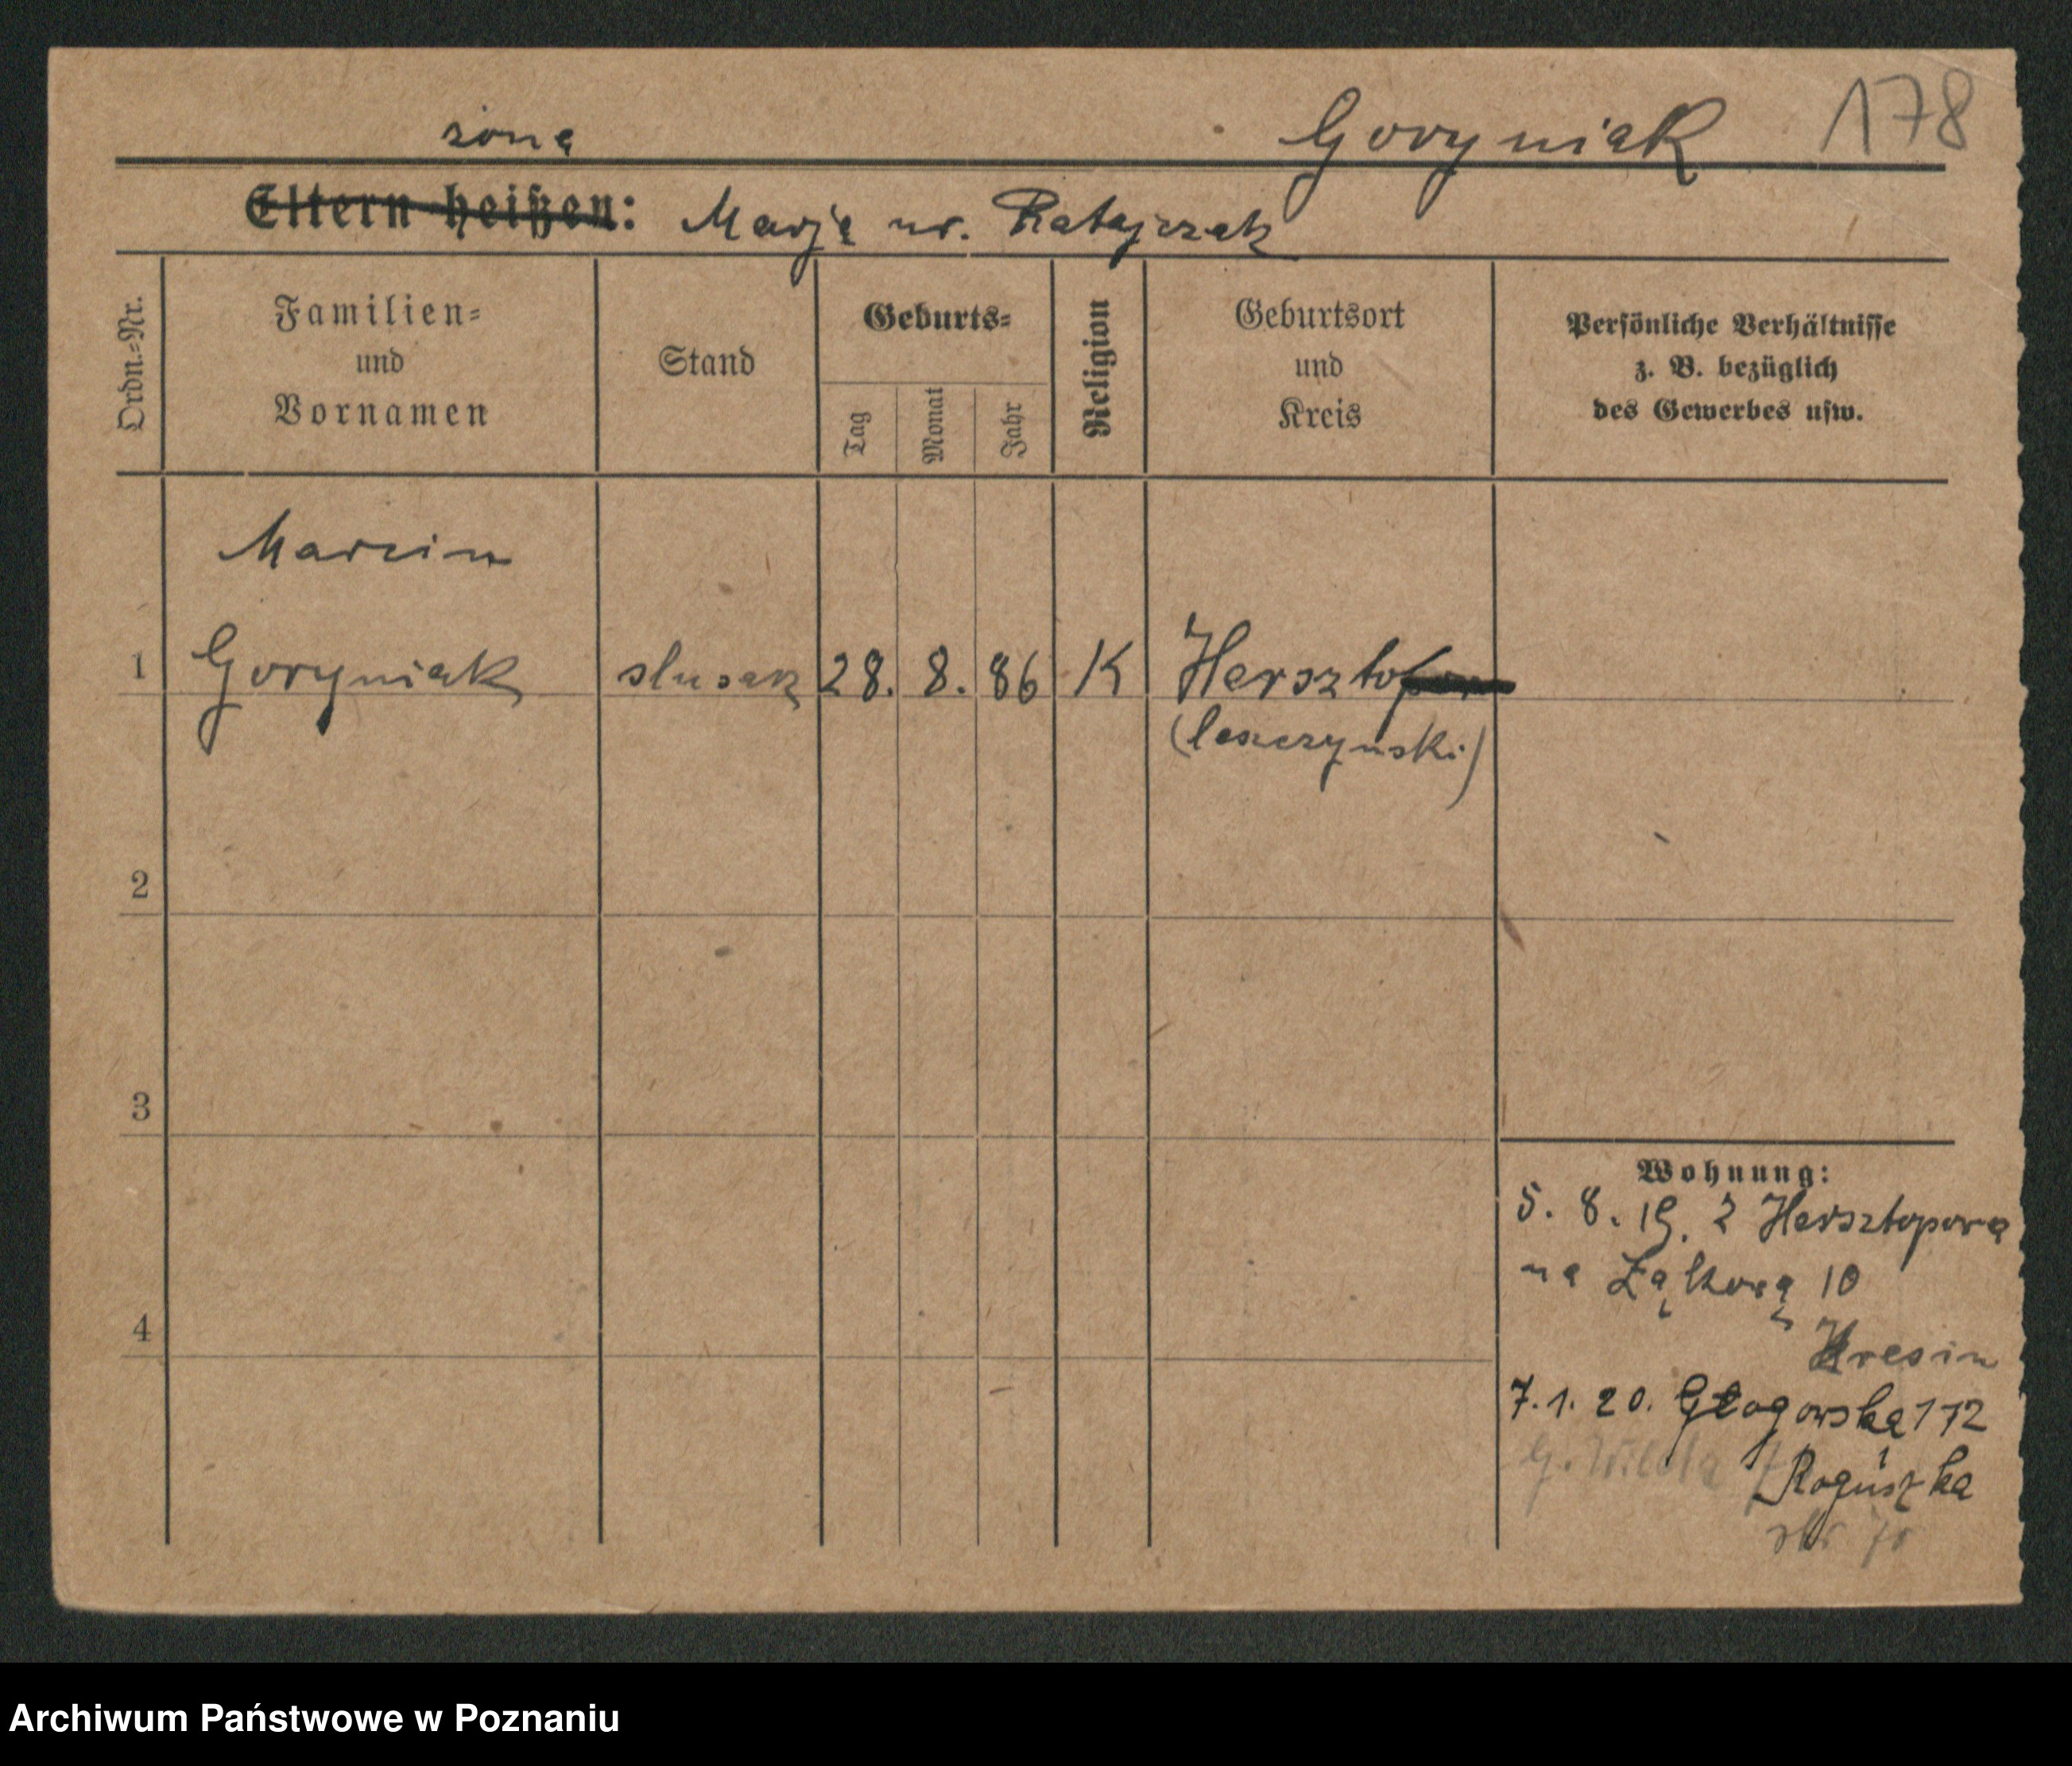 żona Goryniak 178
Eltern heißen: Marja ur. Ratajczak
Ordn.-Nr.
Familien-
und
Vornamen
Stand
Geburts-
Tag
Monat
Jahr
Religion
Geburtsort
und
Kreis
Persönliche Verhältnisse
z. B. bezüglich
des Gewerbes usw.
Marcin
1 Goryniak slusarz 28. 8. 86 K Hersztopowo
(leszczynski)
2
3
4
Wohnung:
5. 8. 19. z Hersztopowa
na Łąkową 10
7. 1. 20. Głogowska 172
G. Wilda
Roguszka
Archiwum Państwowe w Poznaniu